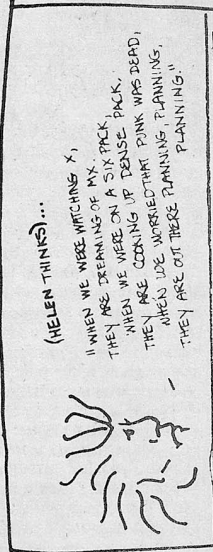 (HELEN THINKS)...
"WHEN WE WERE WATCHING X,
THEY ARE DREAMING OF MX.
WHEN WE WERE ON A SIX PACK,
THEY ARE COOKING UP DENSE PACK.
WHEN WE WORRIED THAT PUNK WAS DEAD,
THEY ARE OUT THERE PLANNING, PLANNING,
PLANNING."